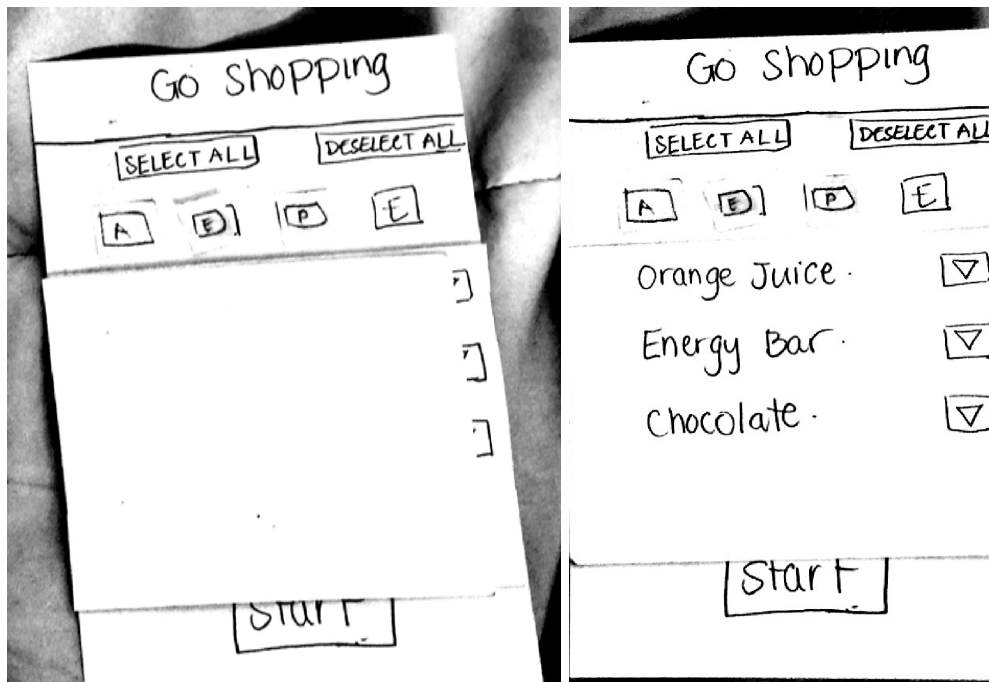 Go Shopping
SELECT ALL DESELECT ALL
A E P E
Start
Go Shopping
SELECT ALL DESELECT ALL
A E P E
Orange Juice
Energy Bar
Chocolate
Start